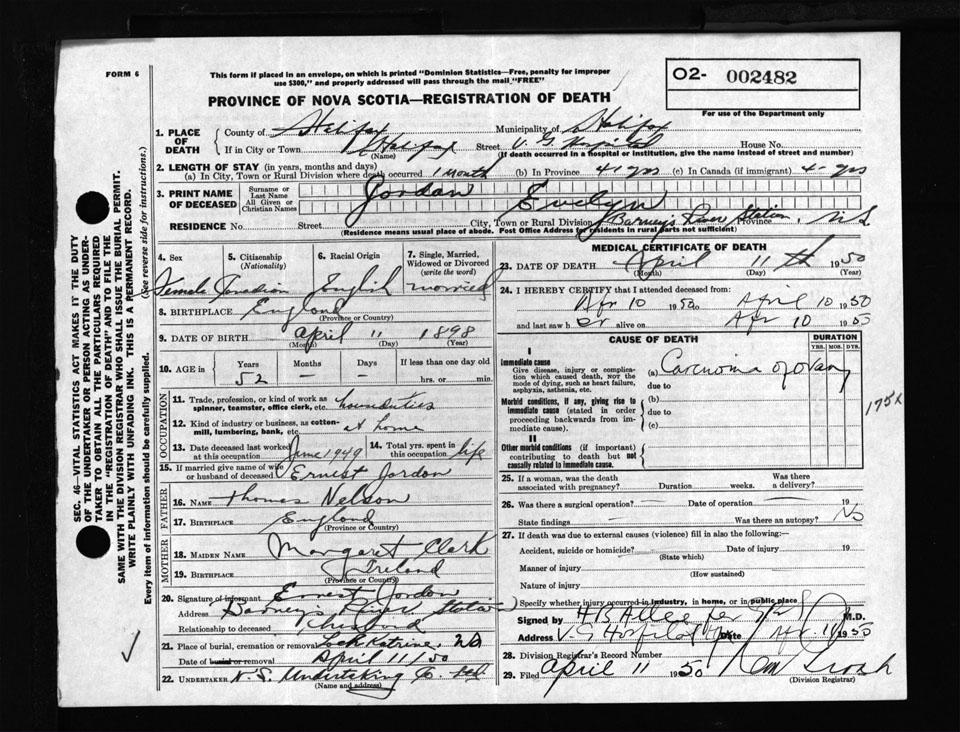 FORM 6
This form if placed in an envelope, on which is printed "Dominion Statistics—Free, penalty for improper
use $300," and properly addressed will pass through the mail "FREE"
O2- 002482
For use of the Department only
PROVINCE OF NOVA SCOTIA—REGISTRATION OF DEATH
1. PLACE OF DEATH County of Halifax Municipality of Halifax
If in City or Town Halifax Street V. G. Hospital House No.
(Name) (If death occurred in a hospital or institution, give the name instead of street and number)
2. LENGTH OF STAY (in years, months and days)
(a) In City, Town or Rural Division where death occurred 1 month (b) In Province 41 yrs (c) In Canada (if immigrant) 41 yrs
3. PRINT NAME OF DECEASED
Surname or Last Name Jordan
All Given or Christian Names Evelyn
RESIDENCE No. Street City, Town or Rural Division Barney's River Station, Province N S
(Residence means usual place of abode. Post Office Address for residents in rural parts not sufficient)
4. Sex Female
5. Citizenship (Nationality) Canadian
6. Racial Origin English
7. Single, Married, Widowed or Divorced (write the word) married
8. BIRTHPLACE England
(Province or Country)
9. DATE OF BIRTH April 11 1898
(Month) (Day) (Year)
10. AGE in Years Months Days If less than one day old
52 – – hrs. or min.
OCCUPATION
11. Trade, profession, or kind of work as
spinner, teamster, office clerk, etc. houseduties
12. Kind of industry or business, as cotton-
mill, lumbering, bank, etc. at home
13. Date deceased last worked at this occupation June 1949
14. Total yrs. spent in this occupation life
15. If married give name of wife or husband of deceased Ernest Jordan
FATHER
16. NAME Thomas Nelson
17. BIRTHPLACE England
(Province or Country)
MOTHER
18. MAIDEN NAME Margaret Clark
19. BIRTHPLACE Ireland
(Province or Country)
20. Signature of informant Ernest Jordon
Address Barney's River Station
Relationship to deceased Husband
21. Place of burial, cremation or removal Loch Katrine, NS
Date of burial or removal April 11/50
22. UNDERTAKER N. S. Undertaking Co. Ltd.
(Name and address)
MEDICAL CERTIFICATE OF DEATH
23. DATE OF DEATH April 11 th 1950
(Month) (Day) (Year)
24. I HEREBY CERTIFY that I attended deceased from:
Apr 10 1950 to April 10 1950
and last saw her alive on Apr 10 1950
CAUSE OF DEATH
DURATION
YRS. MOS. DYS.
I
Immediate cause
Give disease, injury or complication which caused death, NOT the mode of dying, such as heart failure, asphyxia, asthenia, etc.
(a) Carcinoma of ovary
due to
Morbid conditions, if any, giving rise to immediate cause (stated in order proceeding backwards from immediate cause).
(b)
due to
(c)
175x
II
Other morbid conditions (if important) contributing to death but not causally related to immediate cause.
25. If a woman, was the death associated with pregnancy? Duration weeks. Was there a delivery?
26. Was there a surgical operation? Date of operation 19
State findings Was there an autopsy? No
27. If death was due to external causes (violence) fill in also the following:—
Accident, suicide or homicide? Date of injury 19
(State which)
Manner of injury
(How sustained)
Nature of injury
Specify whether injury occurred in industry, in home, or in public place
Signed by M.D.
Address V. G Hospital Date Apr. 11 1950
28. Division Registrar's Record Number
29. Filed April 11 1950
(Division Registrar)
SEC. 46—VITAL STATISTICS ACT MAKES IT THE DUTY
OF THE UNDERTAKER OR PERSON ACTING AS UNDER-
TAKER TO OBTAIN ALL THE PARTICULARS REQUIRED
IN THE "REGISTRATION OF DEATH" AND TO FILE THE
SAME WITH THE DIVISION REGISTRAR WHO SHALL ISSUE THE BURIAL PERMIT.
WRITE PLAINLY WITH UNFADING INK. THIS IS A PERMANENT RECORD.
Every item of information should be carefully supplied. (See reverse side for instructions.)